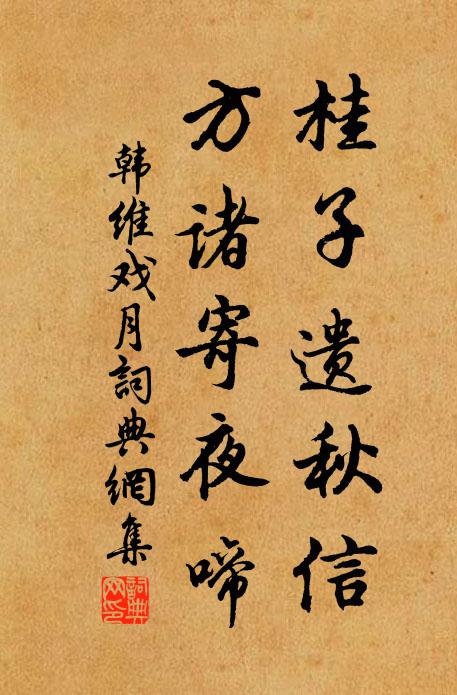 桂子遗秋信
方诸寄夜啼
韩维戏月詞典網集
詞典网印